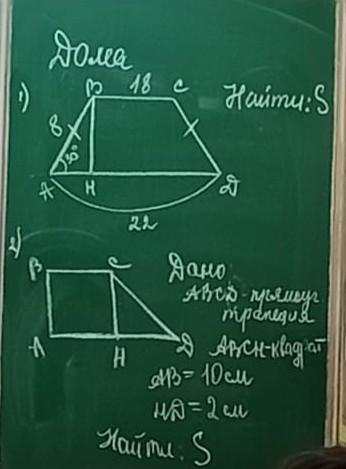 Дома
1) B 18 C Найти: S
8
30°
A H D
22
2)
B C Дано
ABCD-прямоуг
трапеция
A H D ABCH-квадрат
AB = 10 см
HD = 2 см
Найти: S